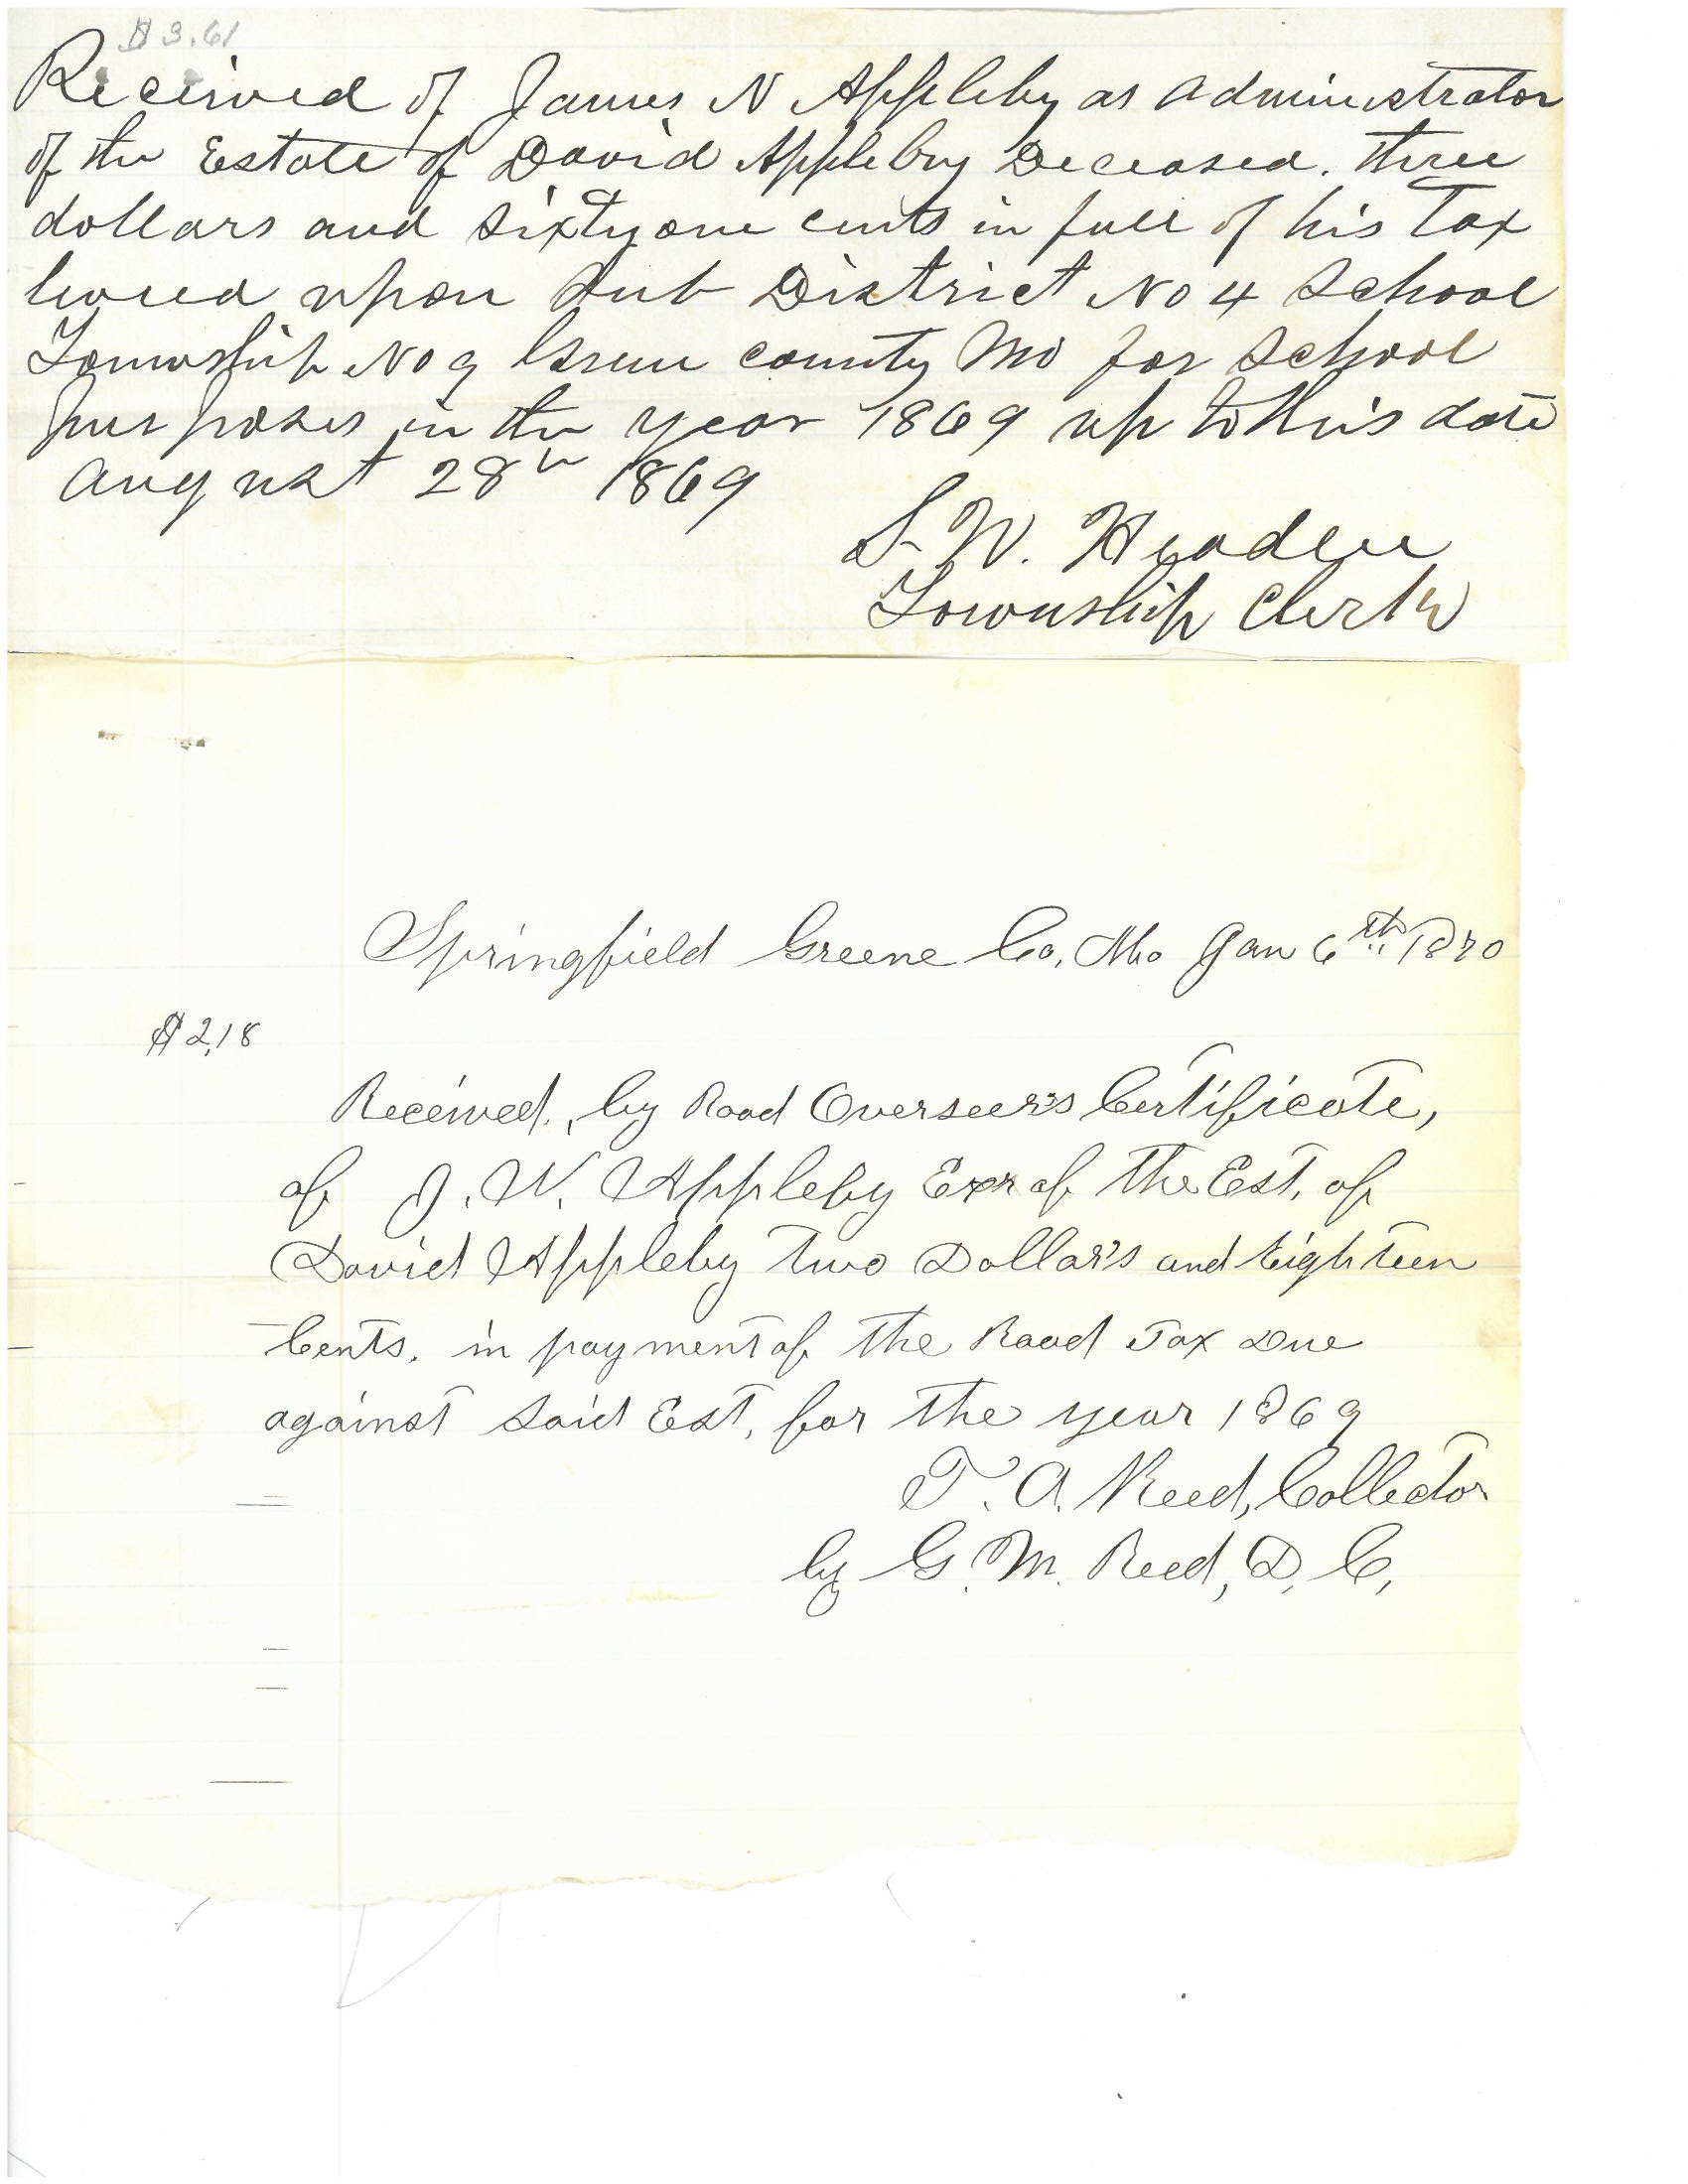 $3.61
Received of James N Appleby as administrator
of the Estate of David Appleby Deceased. three
dollars and sixty one cents in full of his Tax
levied upon Sub District No 4 School
Township No 9 Greene county Mo for School
purposes in the year 1869 up to this date
august 28th 1869
S. W. Headlee
Township Clerk
Springfield Greene Co, Mo Jan 6th 1870
$2,18
Received, by Road Overseer's Certificate,
of J. N. Appleby Exr of the Est, of
David Appleby two Dollar's and Eighteen
Cents, in payment of the Road Tax Due
against Said Est, for the year 1869
T. A. Reed, Collector
by G. M. Reed, D. C,